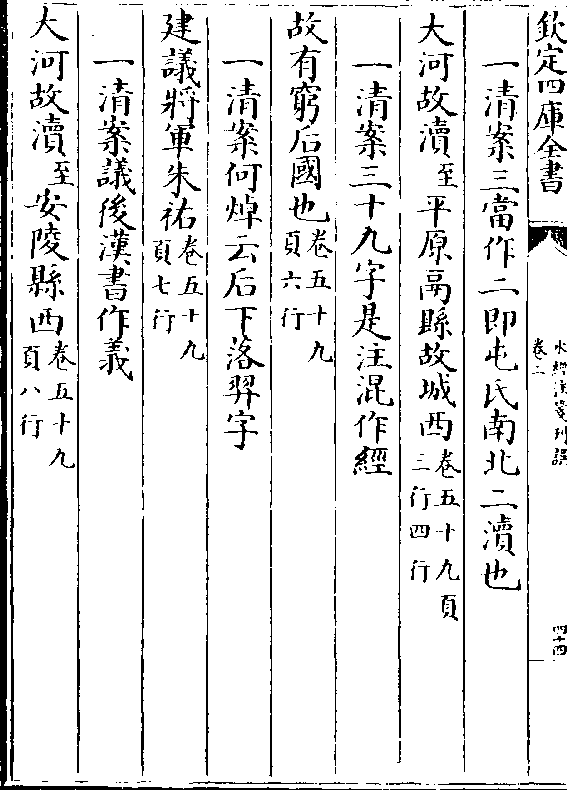 欽定四庫全書
水經注箋刊誤
卷二
四十四
一清案三當作二即屯氏南北二瀆也
大河故瀆至平原鬲縣故城西卷五十九頁三行四行
一清案三十九字是注混作經
故有窮后國也卷五十九頁六行
一清案何焯云后下落羿字
建議將軍朱祐卷五十九頁七行
一清案議後漢書作義
大河故瀆至安陵縣西卷五十九頁八行